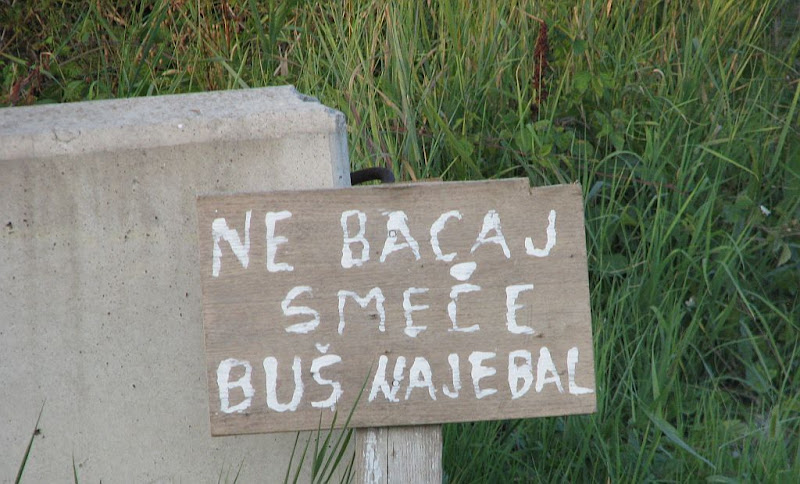 NE BACAJ
SMEČE
BUŠ NAJEBAL